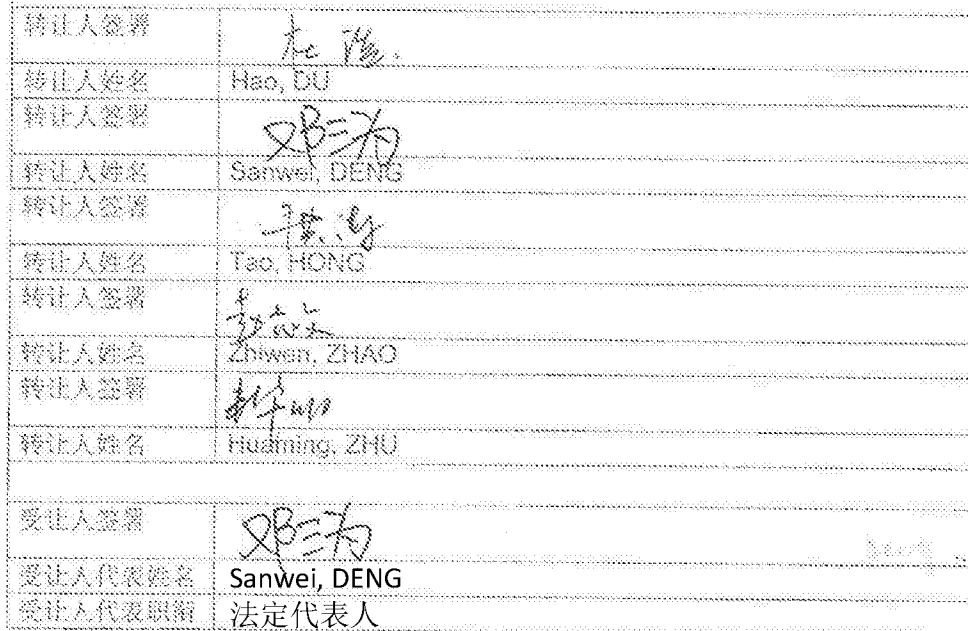 转让人签署
转让人姓名 Hao, DU
转让人签署 邓三为
转让人姓名 Sanwei, DENG
转让人签署
转让人姓名 Tao, HONG
转让人签署 赵志文
转让人姓名 Zhiwen, ZHAO
转让人签署
转让人姓名 Huaming, ZHU
受让人签署 邓三为
受让人代表姓名 Sanwei, DENG
受让人代表职衔 法定代表人